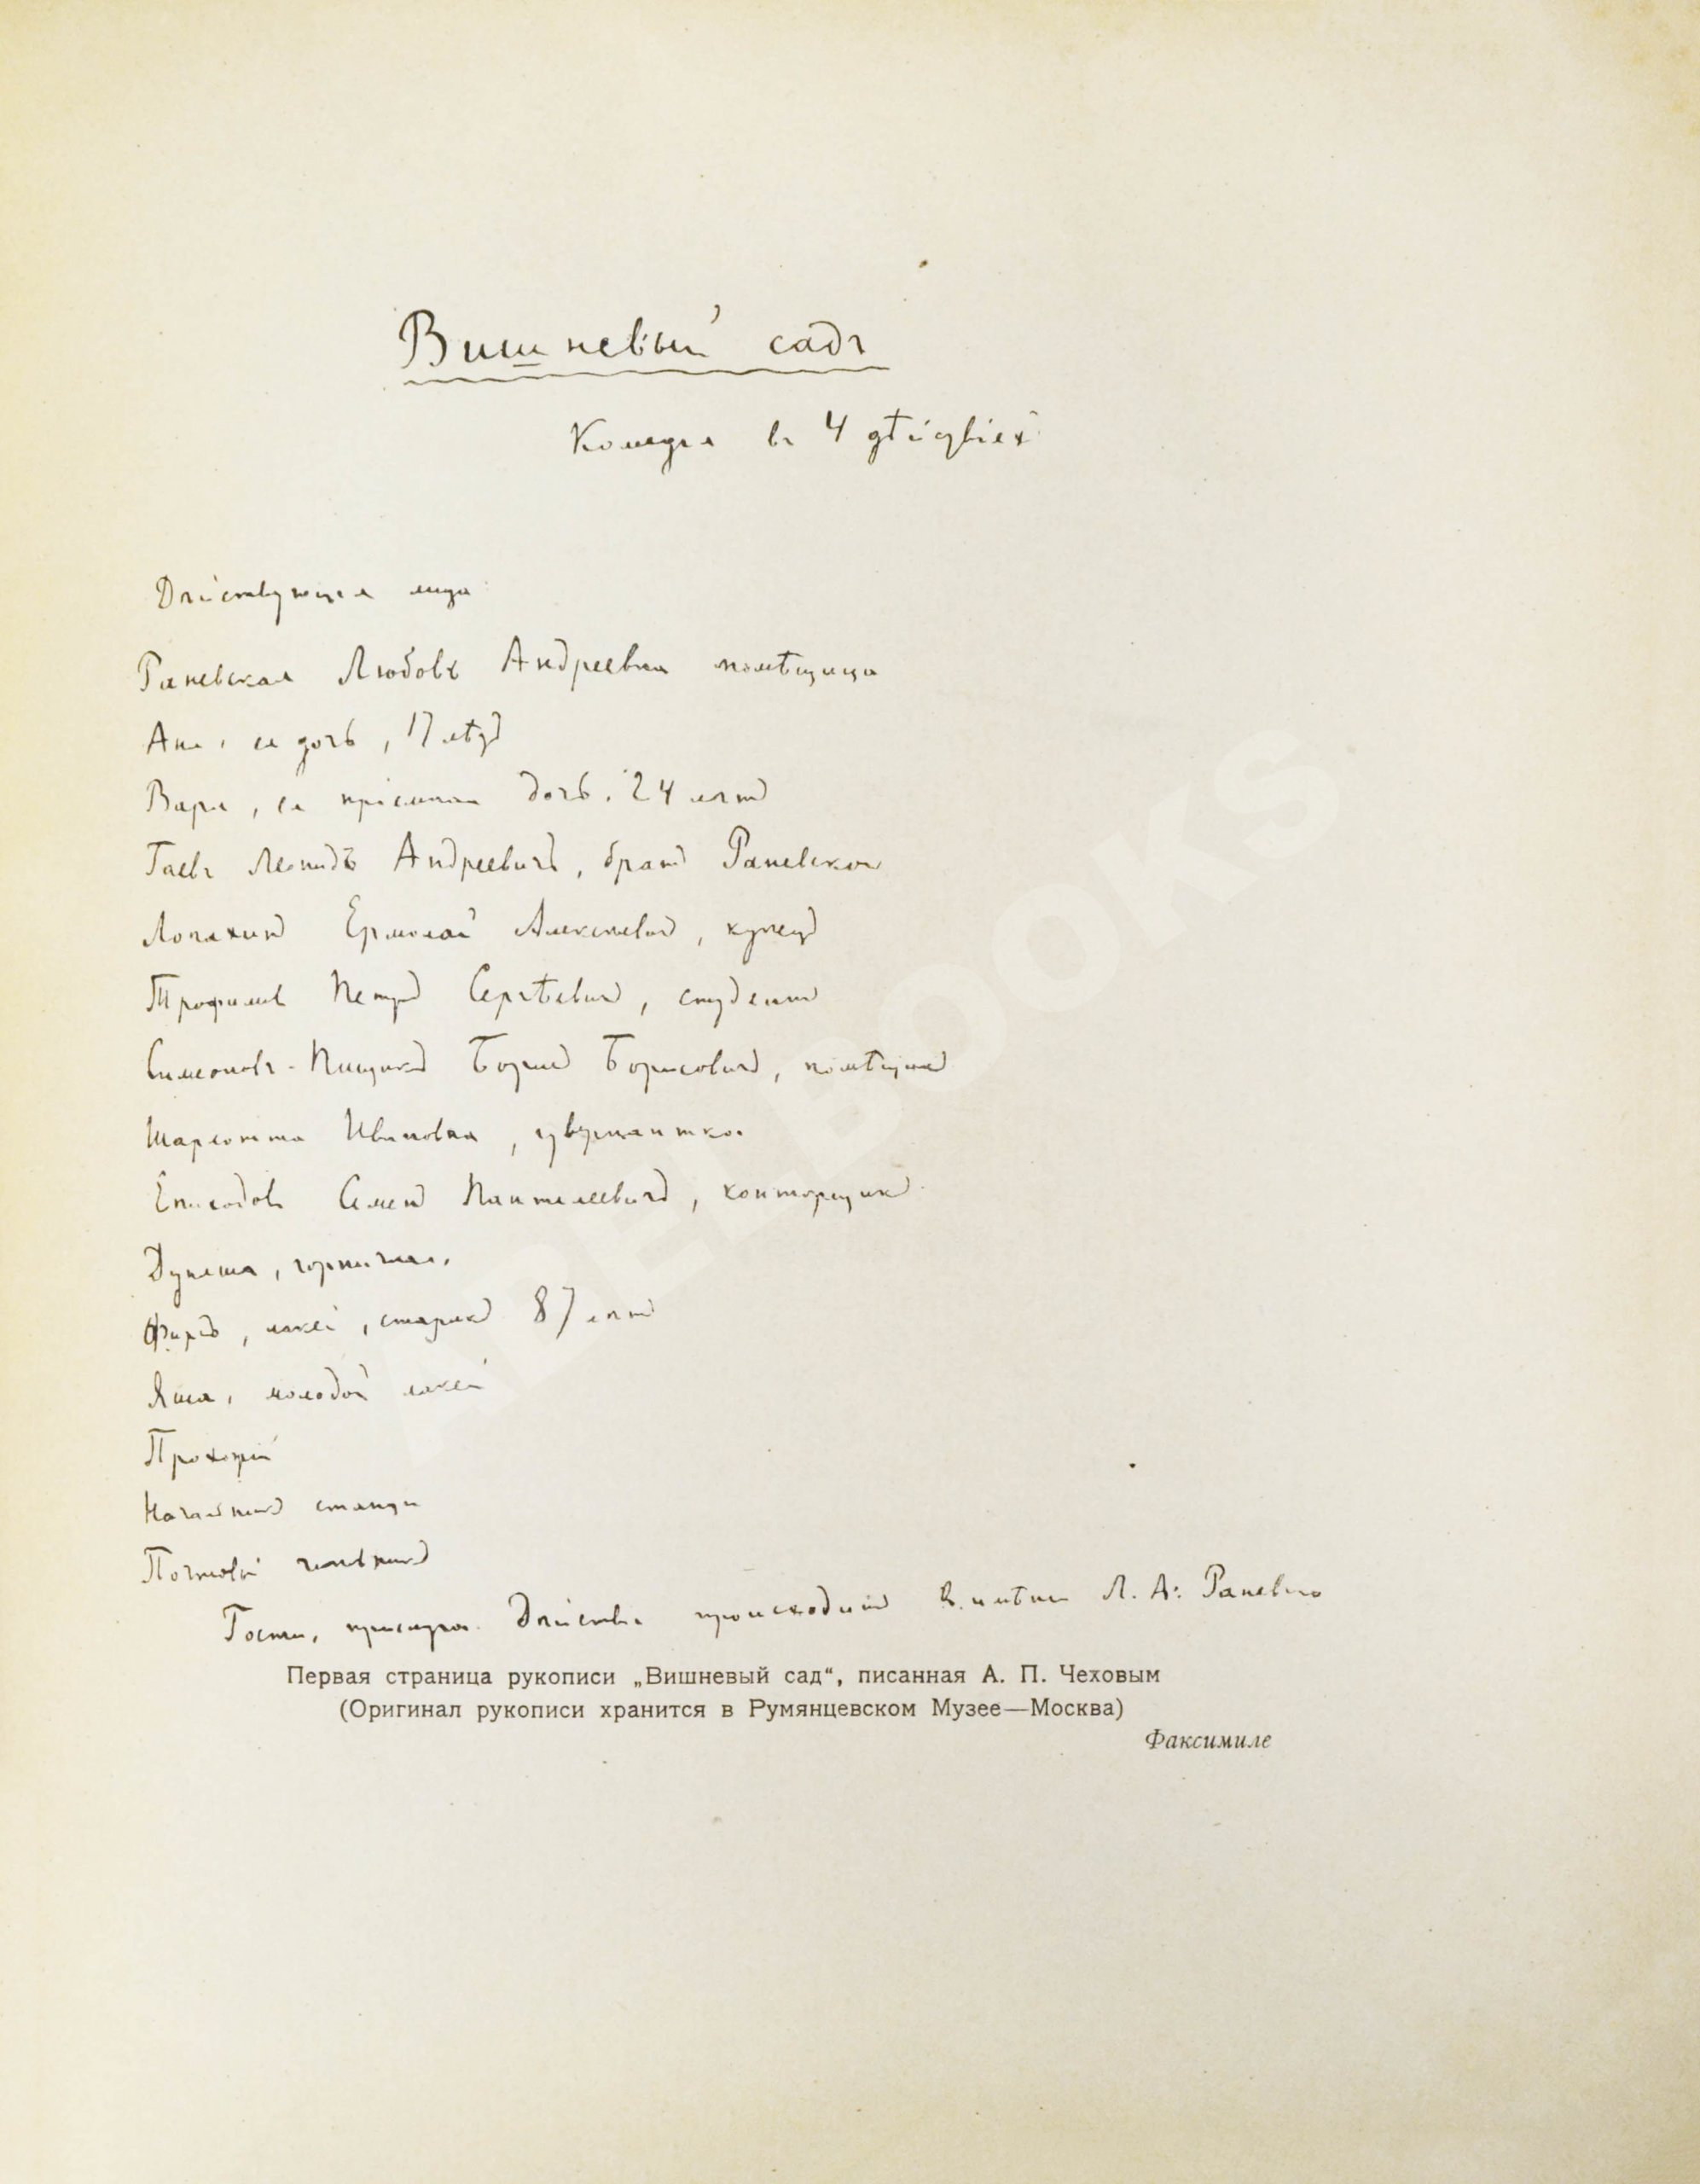 Вишневый садъ
Комедия въ 4 дѣйствіях
Дѣйствующия лица
Раневская Любовь Андреевна помѣщица
Аня, ея дочь, 17 лѣтъ
Варя, ея приемная дочь, 24 лѣтъ
Гаевъ Леонидъ Андреевичъ, братъ Раневской
Лопахинъ Ермолай Алексѣевичъ, купецъ
Трофимов Петръ Сергѣевичъ, студентъ
Симеоновъ-Пищикъ Борисъ Борисовичъ, помѣщикъ
Шарлотта Ивановна, гувернантка.
Епиходов Семенъ Пантелеевичъ, конторщикъ
Дуняша, горничная.
Фирсъ, лакей, старикъ 87 лѣтъ
Яша, молодой лакей
Прохожий
Начальникъ станции
Почтовый чиновникъ
Гости, прислуга. Действие происходитъ в имѣнии Л. А. Раневской
Первая страница рукописи „Вишневый сад“, писанная А. П. Чеховым
(Оригинал рукописи хранится в Румянцевском Музее—Москва)
Факсимиле
ABELBOOKS